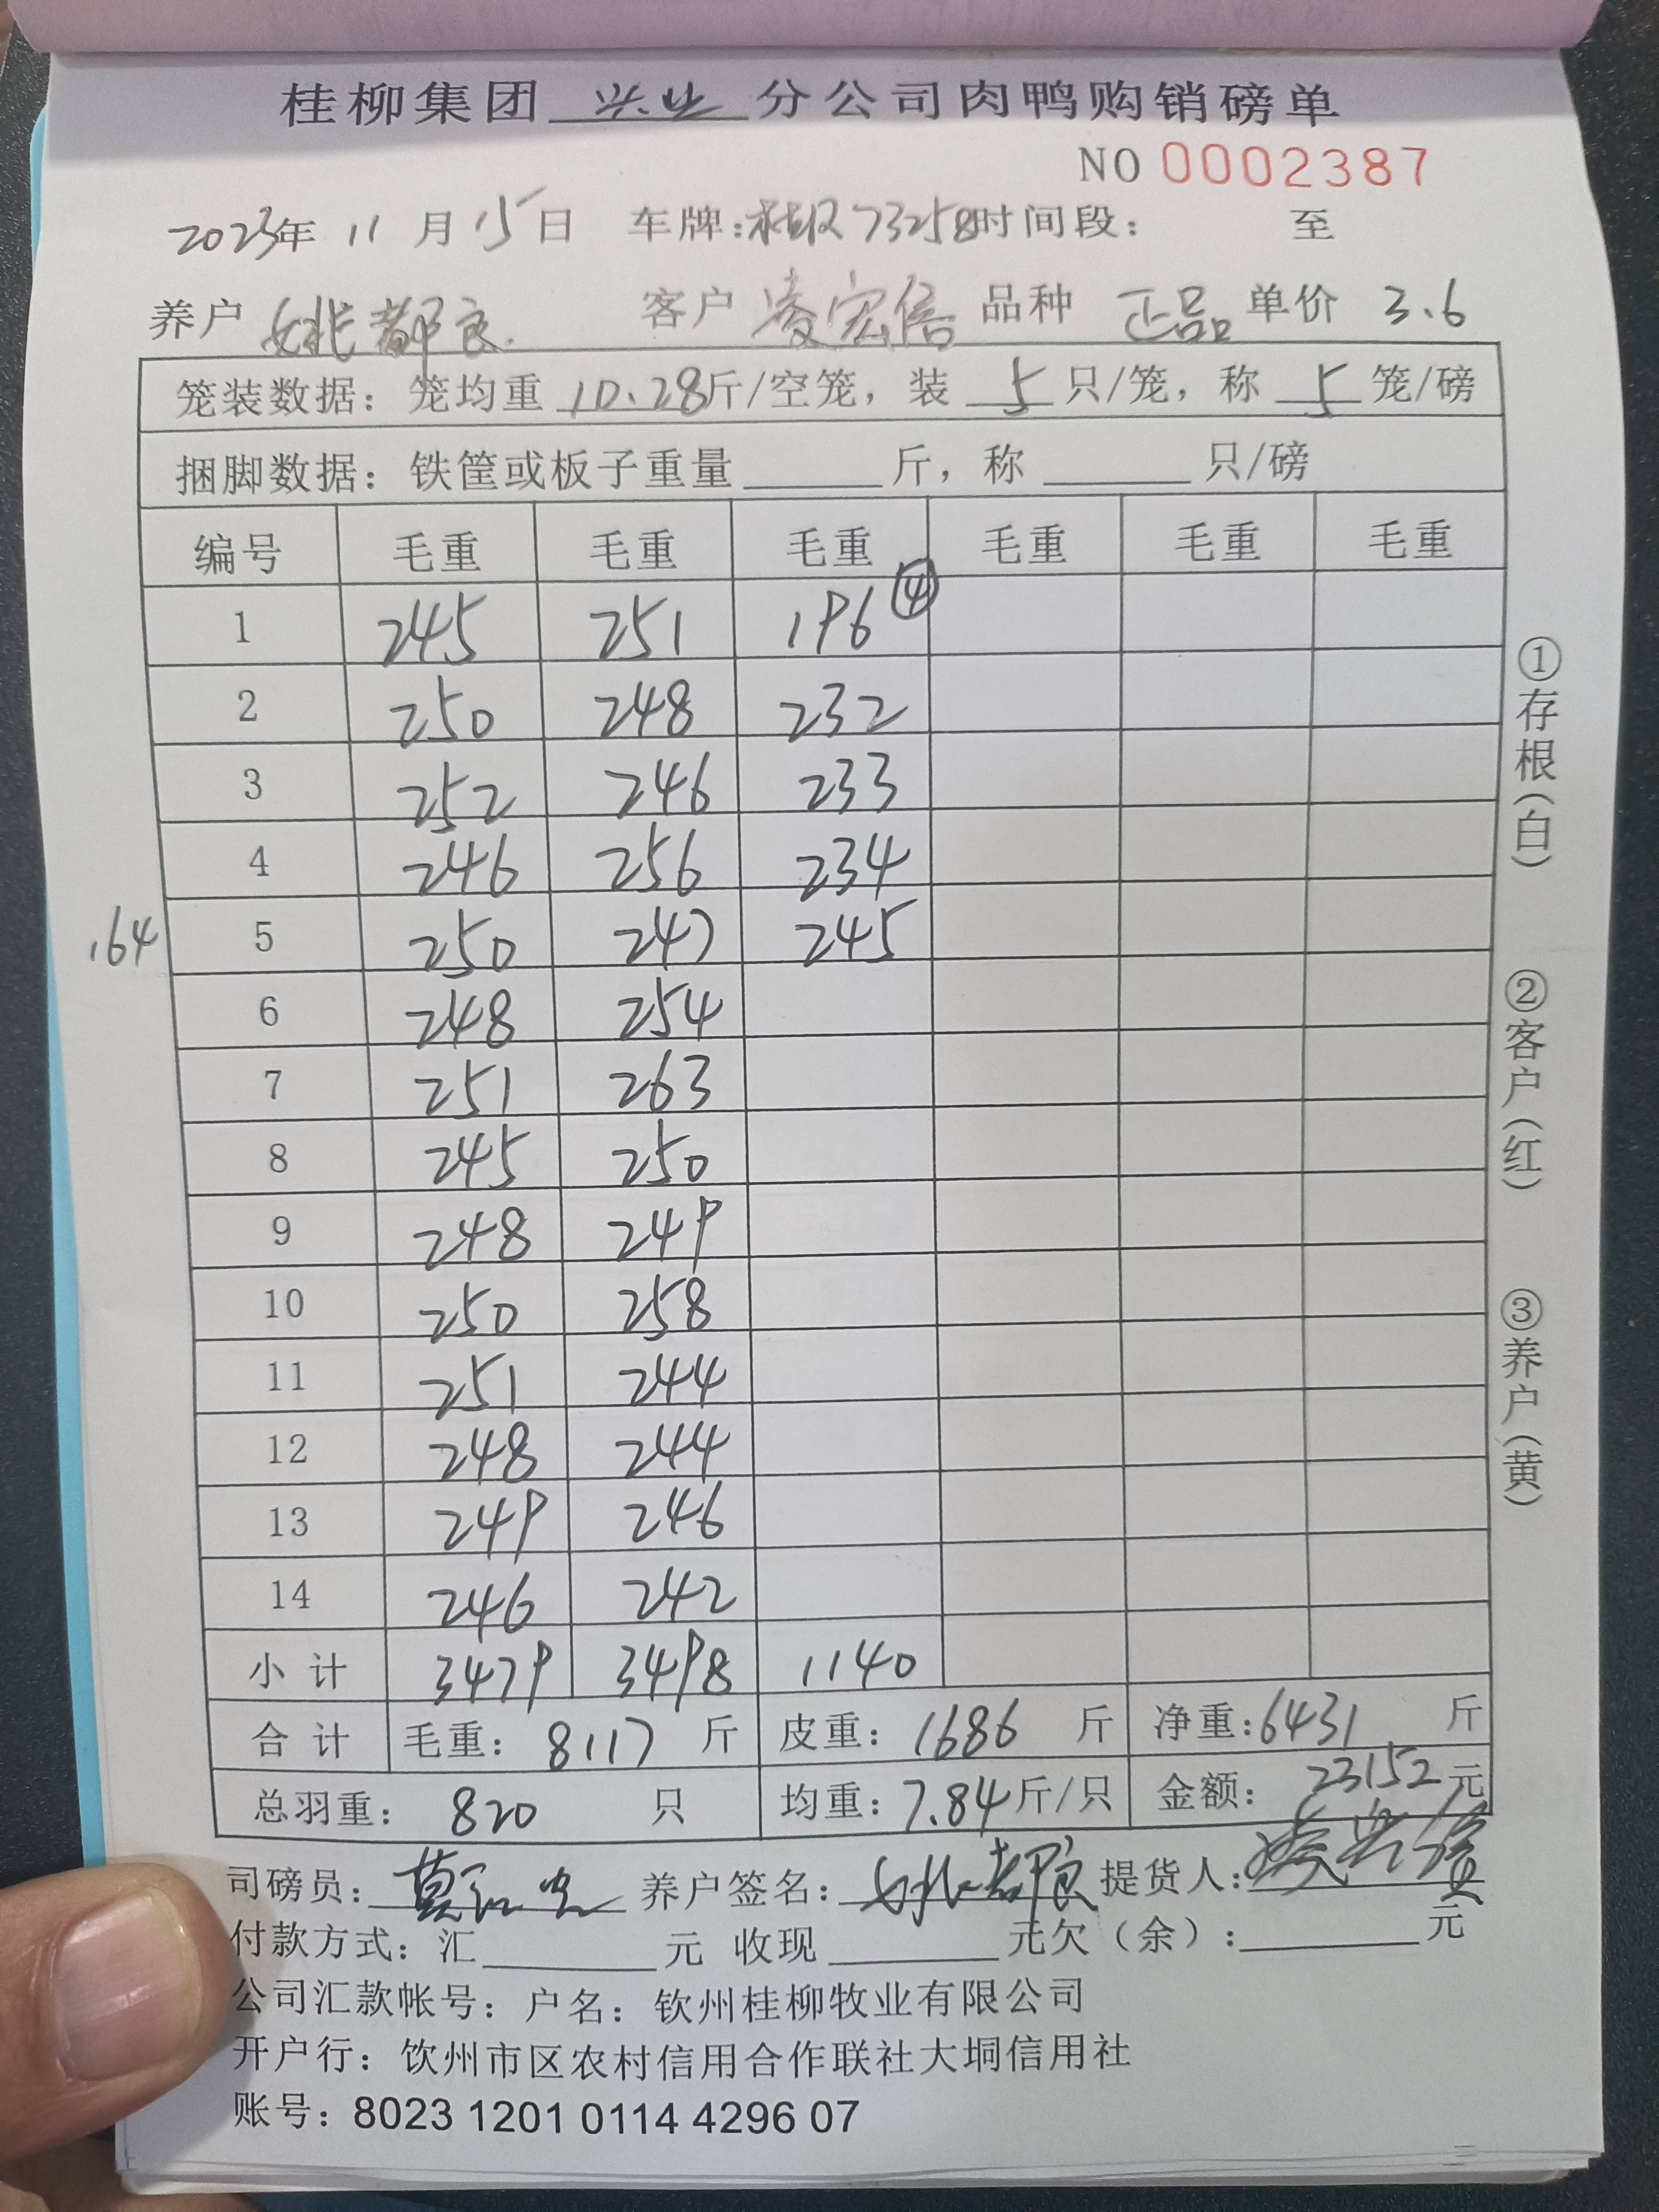 桂柳集团 兴业 分公司肉鸭购销磅单
NO 0002387
2023年 11 月 15 日 车牌:桂 73258 时间段: 至
养户 姚都良 客户 凌宏信 品种 正品 单价 3.6
笼装数据: 笼均重 10.28 斤/空笼, 装 5 只/笼, 称 5 笼/磅
捆脚数据: 铁筐或板子重量 斤, 称 只/磅
编号 毛重 毛重 毛重 毛重 毛重 毛重
1 245 251 196 ④
2 250 248 232
3 252 246 233
4 246 256 234
164 5 250 247 245
6 248 254
7 251 263
8 245 250
9 248 249
10 250 258
11 251 244
12 248 244
13 249 246
14 246 242
小计 3479 3498 1140
合计 毛重: 8117 斤 皮重: 1686 斤 净重: 6431 斤
总羽重: 820 只 均重: 7.84 斤/只 金额: 23152 元
司磅员: 养户签名: 姚都良 提货人:
付款方式: 汇 元 收现 元欠(余): 元
公司汇款帐号: 户名: 钦州桂柳牧业有限公司
开户行: 饮州市区农村信用合作联社大垌信用社
账号: 8023 1201 0114 4296 07
①存根(白)
②客户(红)
③养户(黄)